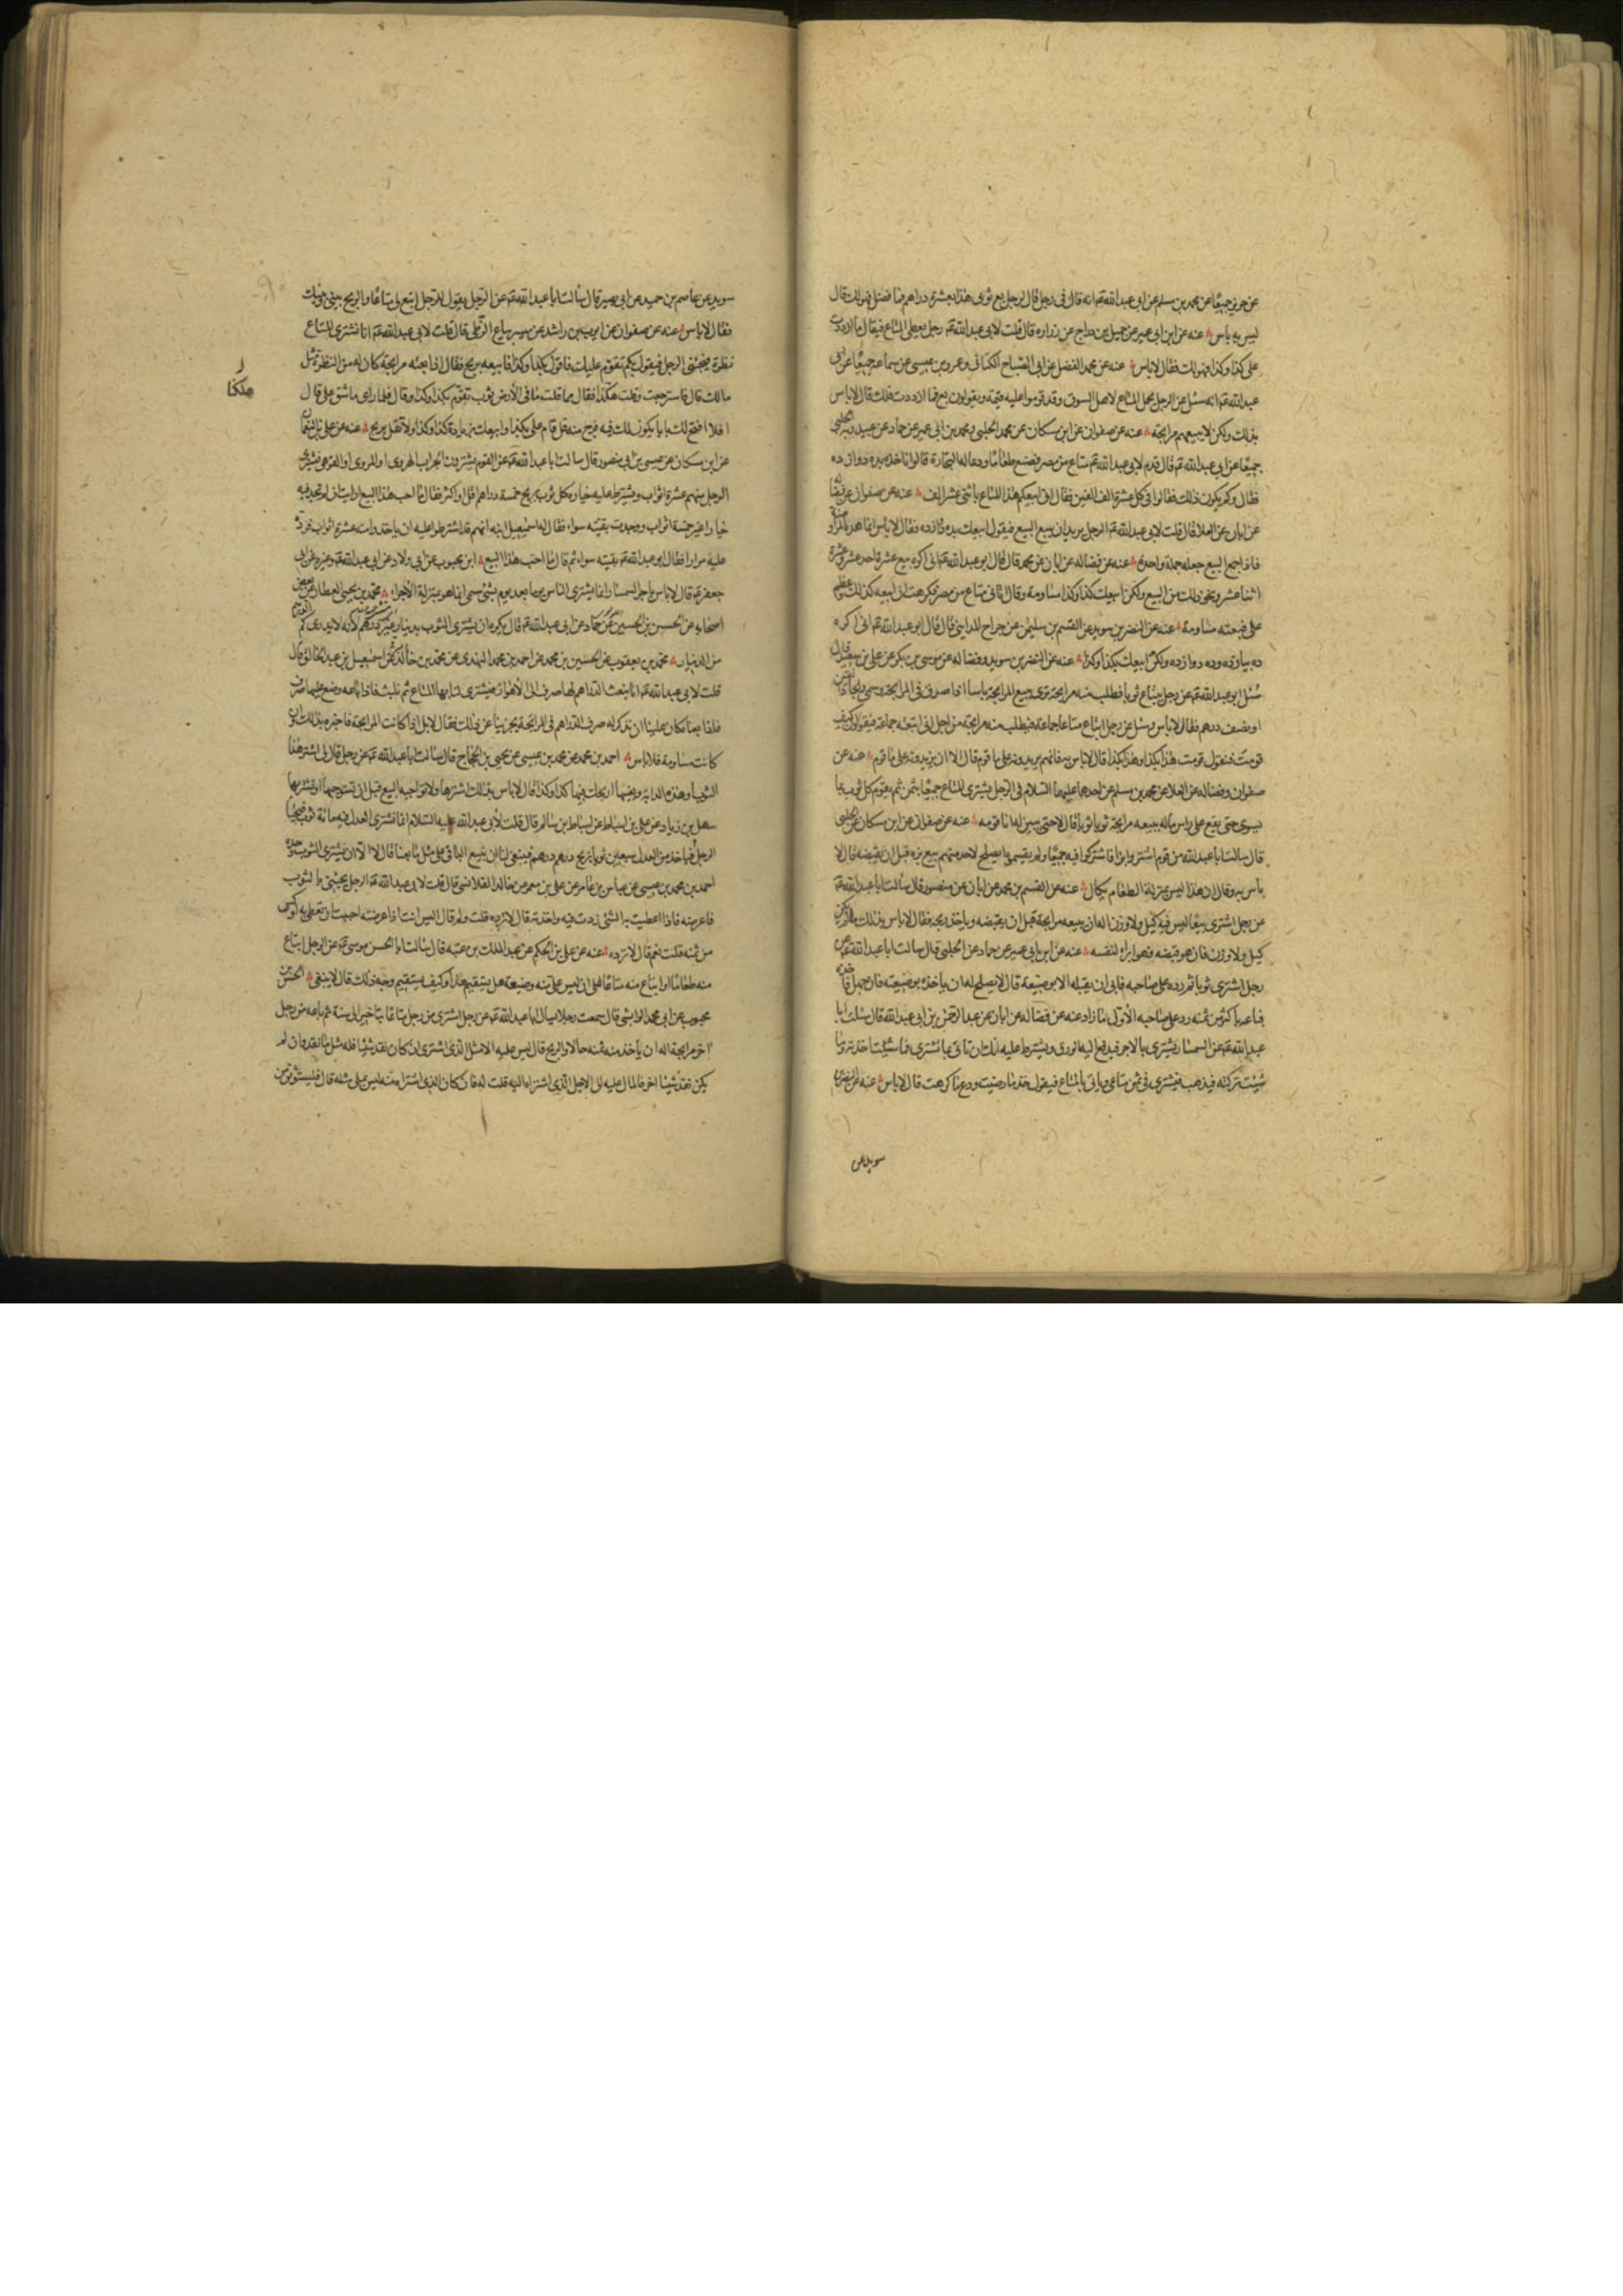 عن حريز جميعا عن محمد بن مسلم عن ابى عبد الله عم انه قال فى رجل قال لرجل بع ثوبى هذا بعشرة دراهم فما فضل فهو لك قال
ليس به باس عنه عن ابن ابى عمير عن جميل بن دراج عن زراره قال قلت لابى عبد الله عم رجل يعطى المتاع فيقال ما ازددت
على كذا وكذا فهو لك فقال لاباس عنه عن محمد الفضل عن ابى الصباح الكنانى وعن عيسى عن سماعه جميعا عن ابى
عبد الله عم انه سئل عن الرجل يحمل المتاع لاهل السوق وقد قوموا عليه قيمة ويقولون بع فما ازددت فلك قال لاباس
بذلك ولكن لا يبيعهم مرابحة عنه عن صفوان عن ابن مسكان عن محمد الحلبى ومحمد بن ابى عمير عن حماد عن عبيد الله الحلبى
جميعا عن ابى عبد الله عم قال قدم لابى عبد الله عم متاع من مصر فصنع طعاما ودعا له التجارة قالوا ناخذه بده دوازده
فقال وكم يكون ذلك فقالوا فى كل عشرة الف الفين فقال انى ابيعكم هذا المتاع باثنى عشر الف عنه عن صفوان
عن ابان عن العلا قال قلت لابى عبد الله عم الرجل يريد ان يبيع البيع فيقول ابيعك بده دوازده فقال لاباس انما هذه المراوضة
فاذا جمع البيع جعله جملة واحدة عنه عن فضاله عن ابان عن محمد قال قال ابو عبد الله عم انى اكره بيع عشرة باحد عشر وعشرة
اثنا عشر ونحو ذلك من البيع ولكن ابيعك كذا وكذا مساومة وقال اتانى متاع من مصر فكرهت ان ابيعه كذلك وعظم
على فبعته مساومة عنه عن النضر بن سويد عن القسم بن سليمن عن جراح المداينى قال قال ابو عبد الله عم انى اكره
ده بيازده وده دوازده ولكن ابيعك بكذا وكذا عنه عن النضر بن سويد وفضاله عن موسى بن بكر عن على بن سعيد قال
سئل ابو عبد الله عم عن رجل يبتاع ثوبا فطلب منه مرابحة ترى ببيع المرابحة باسا اذا صدق فى المرابحة وسمى ربحا دانقين
او نصف درهم فقال لاباس وسئل عن رجل ابتاع متاعا جماعة فيطلب منه مرابحة من اجل انى ابتعته جماعة فيقولون كيف
قومت فنقول قومت هذا بكذا وهذا بكذا قال لاباس به فانهم يزيدونه على ما قوم قال الا ان يزيدونه على ما قوم عنه عن
صفوان وفضاله عن العلا عن محمد بن مسلم عن احدهما عليهما السلام فى الرجل يشترى المتاع جميعا بثمن ثم يقوم كل ثوب بما
يسوى حتى يقع على راس ماله يبيعه مرابحة ثوبا ثوبا قال لا حتى يبين له انما قومه عنه عن صفوان عن ابن مسكان عن الحلبى
قال سالت ابا عبد الله عن قوم اشتروا بزا فاشتركوا فيه جميعا ولم يقسموا يصلح لاحد منهم بيع بزه قبل ان يقبضه قال لا
باس به وقال ان هذا ليس بمنزلة الطعام يكال عنه عن القسم بن محمد عن ابان عن منصور قال سالت ابا عبد الله عم
عن رجل اشترى بيعا ليس فيه كيل ولا وزن اله ان يبيعه مرابحة قبل ان يقبضه وياخذ ربحه فقال لاباس بذلك ما لم يكن
كيل ولا وزن فان هو قبضه فهو ابرء لنفسه عنه عن ابن ابى عمير عن حماد عن الحلبى قال سالت ابا عبد الله عم عن
رجل اشترى ثوبا ثم رده على صاحبه فابى ان يقبله الا بوضيعة قال لا يصلح له ان ياخذه بوضيعة فان جهل فاخذه
فباعه باكثر من ثمنه رد على صاحبه الاول ما زاد عنه عن فضاله عن ابان عن عبد الرحمن بن ابى عبد الله قال سئلت ابا
عبد الله عم عن السمسار يشترى بالاجر فيدفع اليه الورق ويشترط عليه انك ان تاتى بما تشترى فما شئت اخذته وما
شئت تركته فيذهب فيشترى ثم ياتى بالمتاع فيقول خذ ما رضيت ودع ما كرهت قال لاباس عنه عن النضر بن
سويد عن
سويد عن عاصم بن حميد عن ابى بصير قال سالت ابا عبد الله عم عن الرجل يقول للرجل ابتع لى متاعا والربح بينى وبينك
فقال لاباس عنه عن صفوان عن ايوب بن راشد عن ميسر بياع الزطى قال قلت لابى عبد الله عم انا نشترى المتاع
نظرة فيجئنى الرجل فيقول بكم تقوم عليك فاقول بكذا وكذا فابيعه بربح فقال اذا بعته مرابحة كان له من النظرة مثل
مالك قال فاسترجعت وقلت هلكنا فقال مما قلت ما فى الارض ثوب تقوم بكذا وكذا وقال فلما راى ما شق على قال
هلكنا
افلا افتح لك بابا يكون لك فيه فرج منه قل قام على بكذا وابيعك بزيادة كذا وكذا ولا تقل بربح عنه عن على بن النعمان
عن ابن مسكان عن عيسى بن ابى منصور قال سالت ابا عبد الله عم عن القوم يشترون الجراب الهروى او المروى او القوهى فيشترى
الرجل منهم عشرة اثواب ويشترط عليه خياره كل ثوب بربح خمسة دراهم اقل او اكثر فقال ما احب هذا البيع ارايت ان لم تجد فيه
خيارا غير خمسة اثواب ووجدت بقيته سواء فقال له اسمعيل ابنه انهم قد اشترطوا عليه ان ياخذ منه عشرة اثواب فردد
عليه مرارا فقال ابو عبد الله عم بقيته سواء ثم قال ما احب هذا البيع ابن محبوب عن ابى ولاد عن ابى عبد الله عم وغيره عن ابى
جعفر عم قال لاباس باجر السمسار انما يشترى للناس يوما بعد يوم بشئ مسمى انما هو بمنزلة الاجراء محمد بن يحيى العطار عن بعض
اصحابه عن الحسين بن الحسن عن حماد عن ابى عبد الله عم قال يكره ان يشترى الثوب بدينار غير درهم لانه لا يدرى كم
من الدينار محمد بن يعقوب عن الحسين بن محمد عن احمد بن محمد النهدى عن محمد بن خالد عن اسمعيل بن عبد الخالق قال
قلت لابى عبد الله عم انا نبعث الدراهم لها صرف الى الاهواز فيشترى لنا بها المتاع ثم نلبث فاذا باعه وضع عليها صرف
فاذا بعنا كان علينا ان نذكر له صرف الدراهم فى المرابحة يجزينا عن ذلك فقال لا بل اذا كانت المرابحة فاخبره بذلك وان
كانت مساومة فلاباس احمد بن محمد عن محمد بن عيسى عن يحيى بن الحجاج قال سالت ابا عبد الله عم عن رجل قال لى اشتر هذا
الثوب او هذه الدابة وبعنيها اربحك فيها كذا وكذا قال لاباس بذلك اشترها ولا تواجبه البيع قبل ان تستوجبها او تشتريها
سهل بن زياد عن على بن اسباط عن اسباط بن سالم قال قلت لابى عبد الله عليه السلام انا نشترى العدل فيه مائة ثوب
الرجل فياخذ من العدل سبعين ثوبا بربح درهم درهم فينبغى لنا ان نبيع الباقى على مثل ما بعنا قال لا الا ان يشترى الثوب وحده
احمد بن محمد بن عيسى عن عباس بن عامر عن على بن معمر عن خالد القلانسى قال قلت لابى عبد الله عم الرجل يجئنى بالثوب
فاعرضه فاذا اعطيت به الشئ زدت فيه واخذته قال لا تزده قلت ولم قال اليس انت اذا عرضته احببت ان تعطى به اوكس
من ثمنه قلت نعم قال لا تزده عنه عن على بن الحكم عن عبد الملك بن عتبه قال سالت ابا الحسن موسى عم عن الرجل ابتاع
منه طعاما او ابتاع منه متاعا على ان ليس على منه وضيعة هل يستقيم هذا وكيف يستقيم وجه ذلك قال لا ينبغى الحسن بن
محبوب عن ابى محمد الوابشى قال سمعت رجلا سال ابا عبد الله عم عن رجل اشترى من رجل متاعا بتاخير الى سنة ثم باعه من رجل
اخر مرابحة اله ان ياخذ منه ثمنه حالا والربح قال ليس عليه الا مثل الذى اشترى ان كان نقد شيئا فله مثل ما نقد وان لم
يكن نقد شيئا اخر فالمال عليه الى الاجل الذى اشتراه اليه قلت له فان كان الذى اشتراه منه ليس بملى مثله قال فليستوثق من